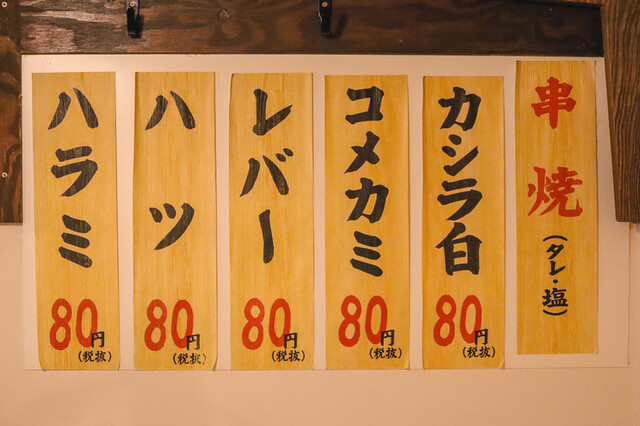 串焼
(タレ・塩)
カシラ白
80円
(税抜)
コメカミ
80円
(税抜)
レバー
80円
(税抜)
ハツ
80円
(税抜)
ハラミ
80円
(税抜)